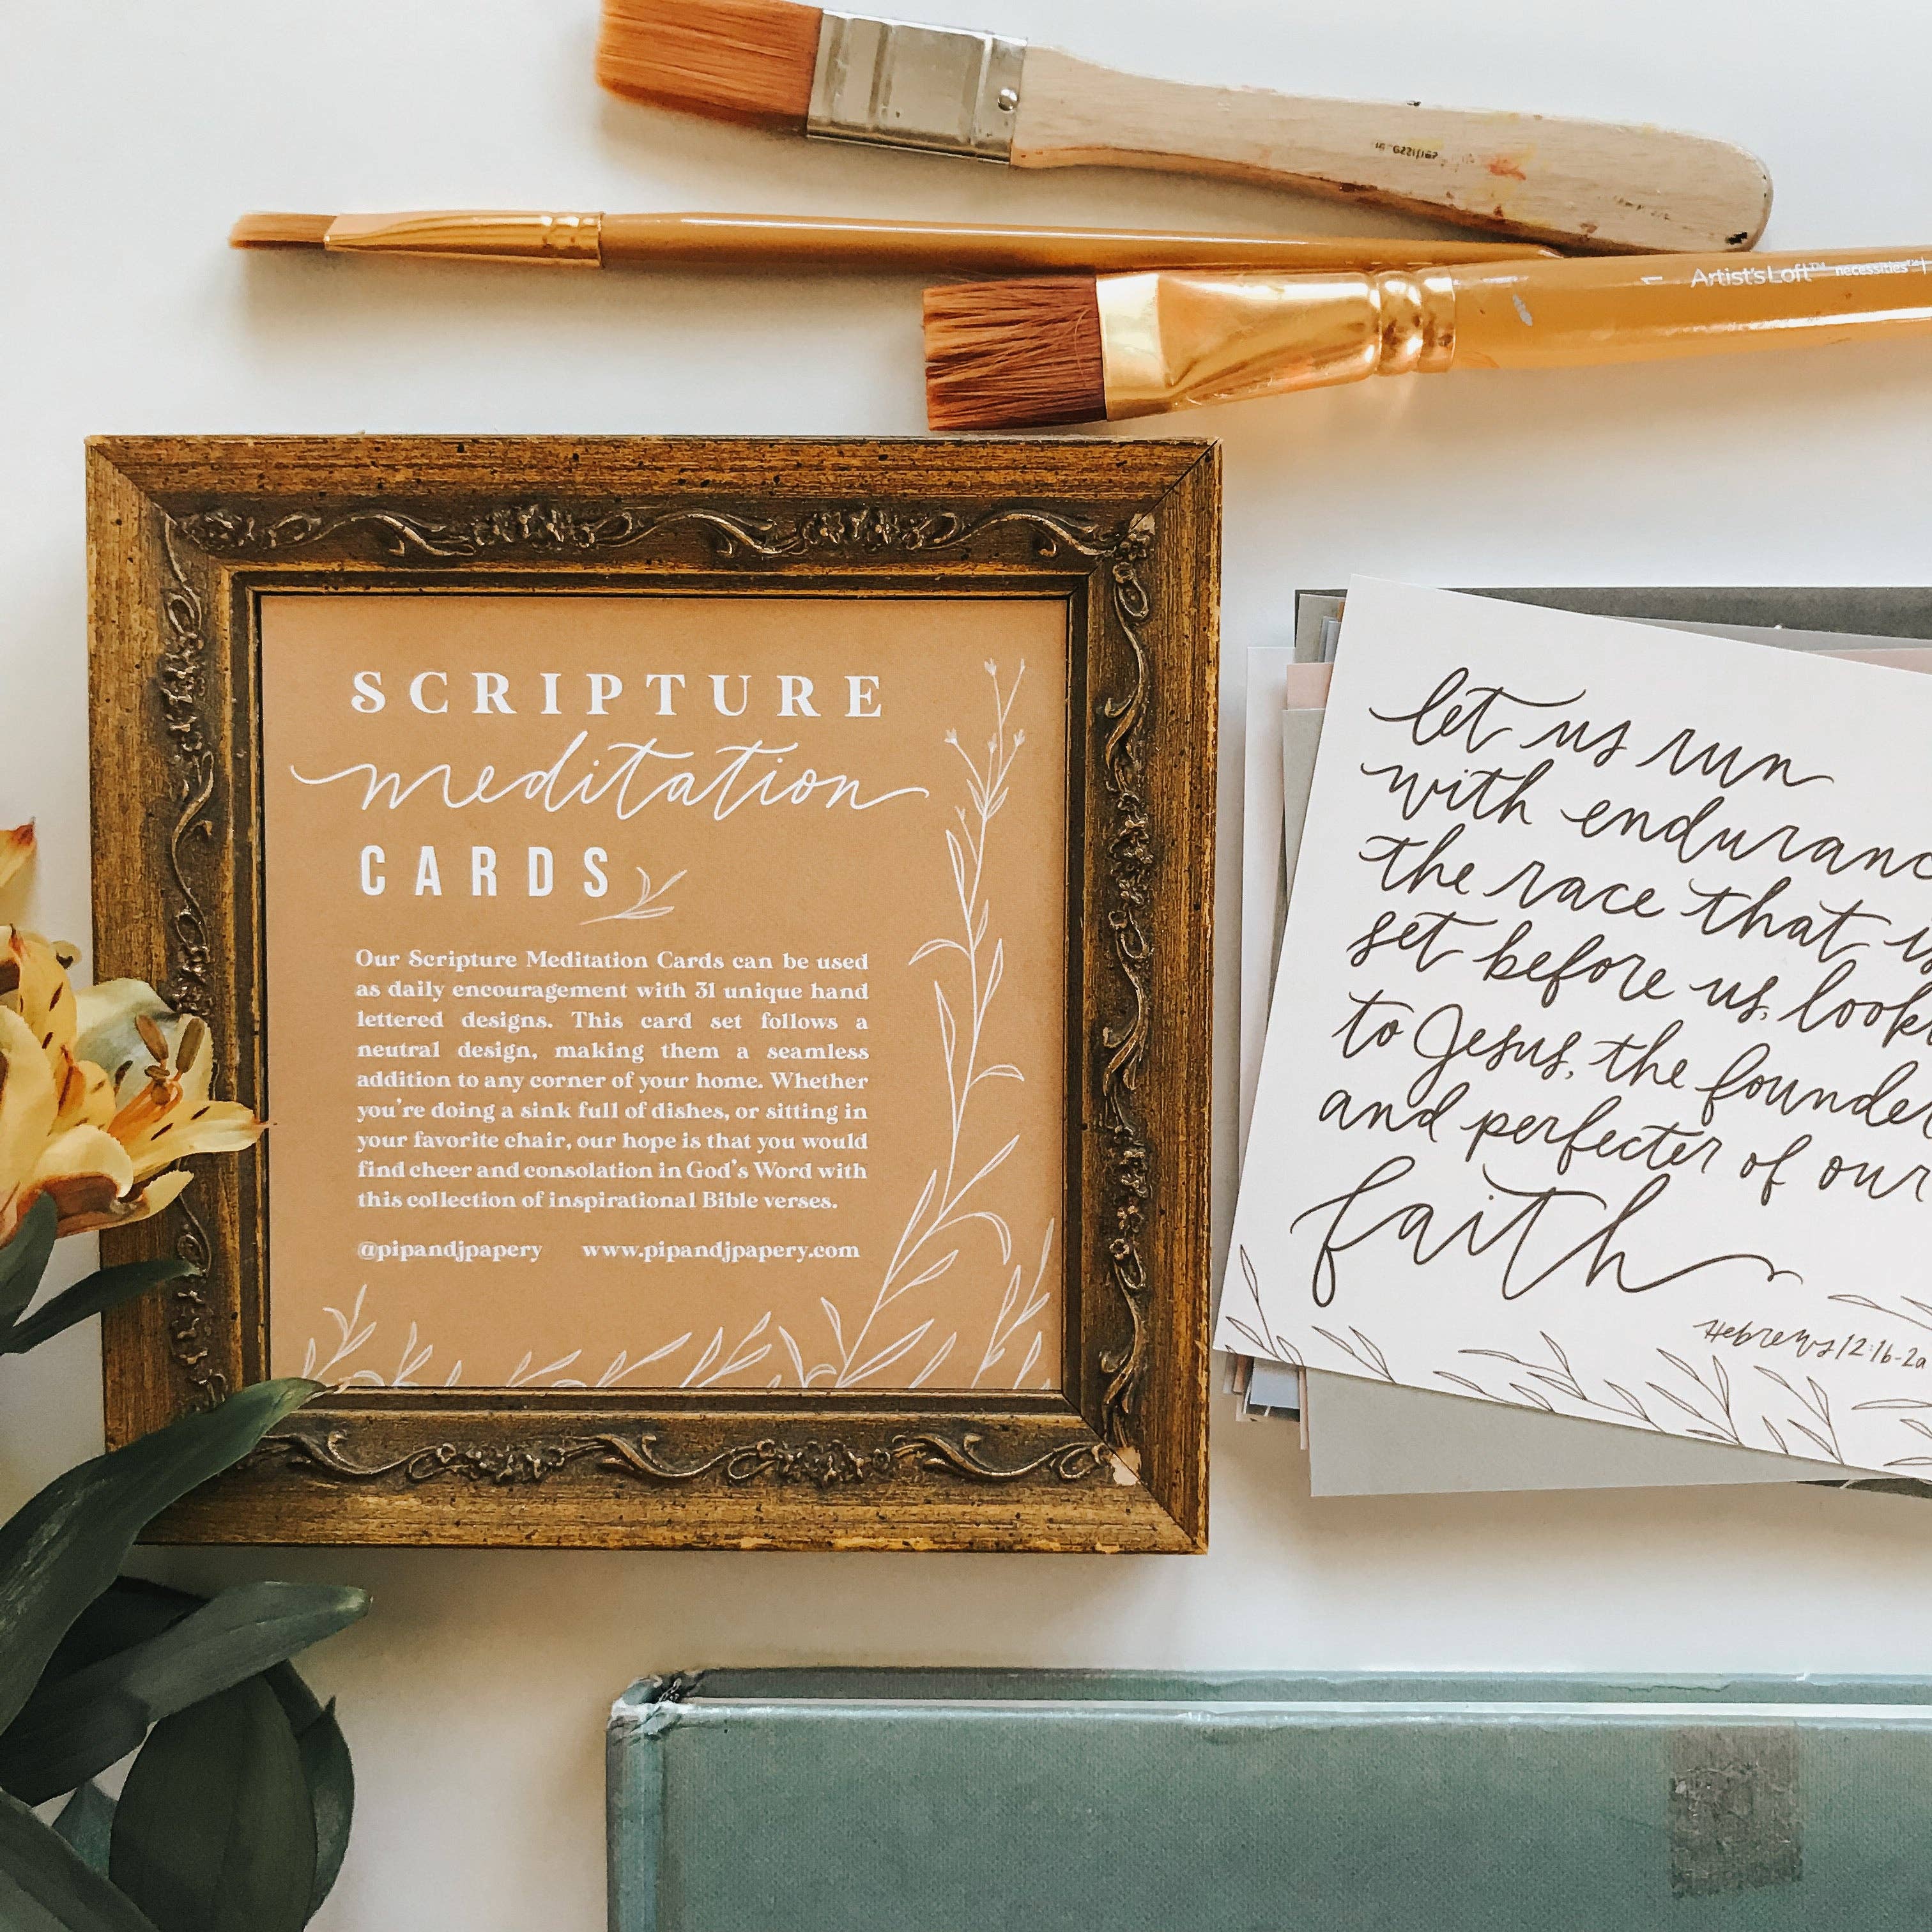 necessities
Artist's Loft™ necessities™
SCRIPTURE
meditation
CARDS
Our Scripture Meditation Cards can be used
as daily encouragement with 31 unique hand
lettered designs. This card set follows a
neutral design, making them a seamless
addition to any corner of your home. Whether
you're doing a sink full of dishes, or sitting in
your favorite chair, our hope is that you would
find cheer and consolation in God's Word with
this collection of inspirational Bible verses.
@pipandjpapery www.pipandjpapery.com
let us run
with enduranc
the race that is
set before us, look
to Jesus, the founder
and perfecter of our
faith
Hebrews 12:1b-2a